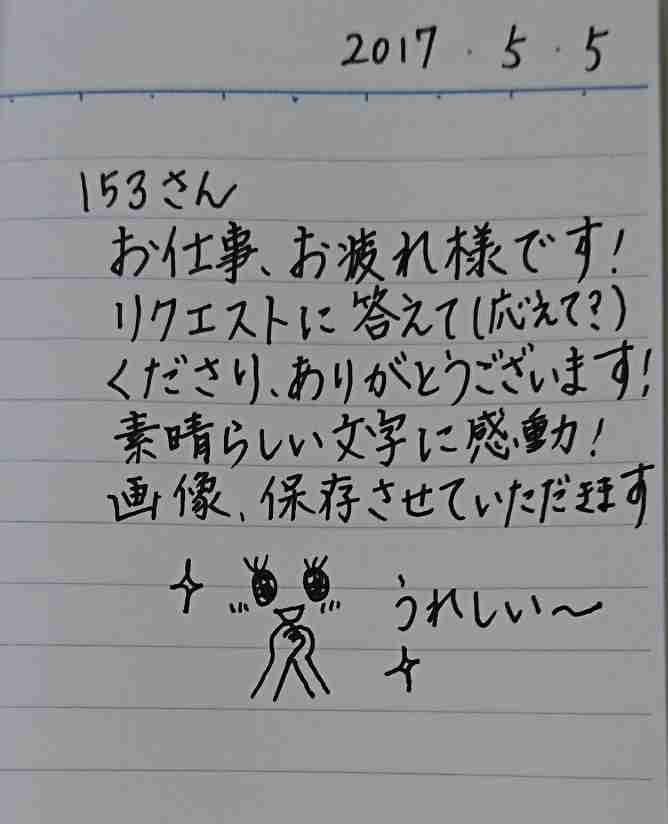 2017.5.5
153さん
お仕事、お疲れ様です!
リクエストに答えて(応えて?)
くださり、ありがとうございます!
素晴らしい文字に感動!
画像、保存させていただきます
うれしい〜